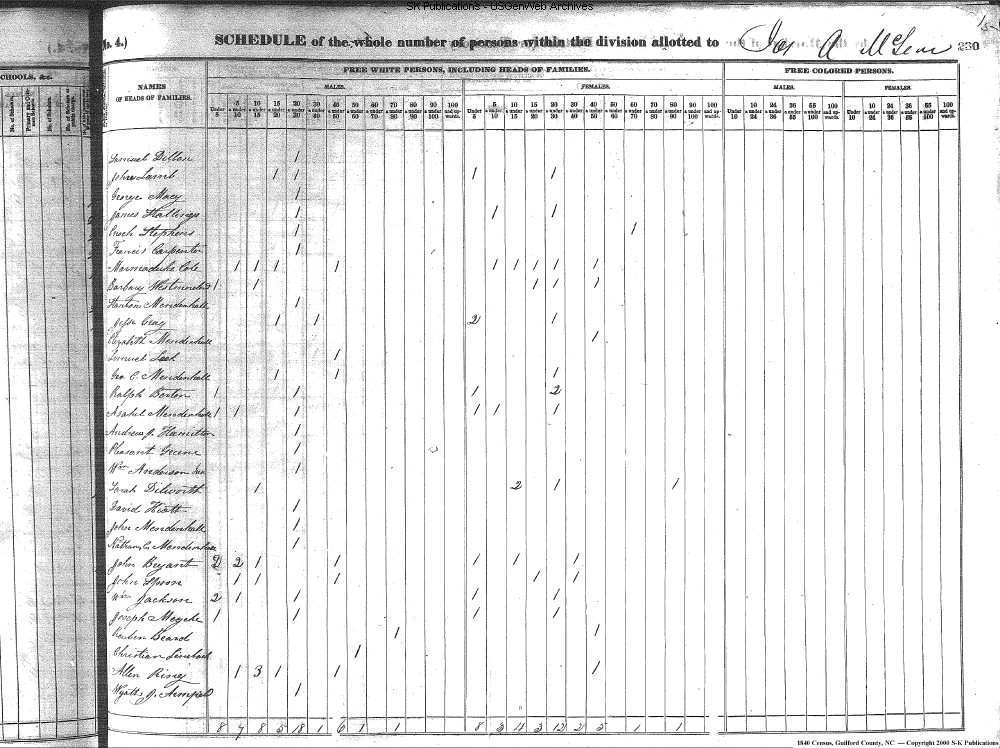 SK Publications - USGenWeb Archives
No. 4.) SCHEDULE of the whole number of persons within the division allotted to Jas A McLean 230
SCHOOLS, &c.
NAMES OF HEADS OF FAMILIES.
FREE WHITE PERSONS, INCLUDING HEADS OF FAMILIES.
FREE COLORED PERSONS.
MALES. FEMALES. MALES. FEMALES.
No. of Scholars.
Under 5 5 & under 10 10 & under 15 15 & under 20 20 & under 30 30 & under 40 40 & under 50 50 & under 60 60 & under 70 70 & under 80 80 & under 90 90 & under 100 100 and upwards.
Under 5 5 & under 10 10 & under 15 15 & under 20 20 & under 30 30 & under 40 40 & under 50 50 & under 60 60 & under 70 70 & under 80 80 & under 90 90 & under 100 100 and upwards.
Under 10 10 & under 24 24 & under 36 36 & under 55 55 & under 100 100 and upwards.
Under 10 10 & under 24 24 & under 36 36 & under 55 55 & under 100 100 and upwards.
Samuel Dillon 1
John Lamb 1 1 1 1
George Macy 1
James Hastings 1 1 1
Enoch Stephens 1 1
Francis Carpenter 1
Marmaduke Cole 1 1 1 1 1 1 1 1 1
Barbary 1 1 1 1 1
Mendenhall 1
Jesse 1 1 2 1
Elizabeth Mendenhall 1
1
Geo. C. Mendenhall 1 1 1
Ralph Benton 1 1 1 2
Asahel Mendenhall 1 1 1 1 1 1
Andrew J. Hamilton 1
Pleasant Greene 1
Wm Anderson 1
Sarah Dilworth 1 2 1 1
David Hiatt 1
John Mendenhall 1
Nathan Mendenhall 1
John Bryant 2 2 1 1 1 1 1
John Spoon 1 1 1 1 1
Wm Jackson 2 1 1 1 1
Joseph 1 1 1 1
Reuben Beard 1 1
Christian 1
Allen 1 3 1 1 1
Wyatt J. Armfield 1
8 7 8 5 18 1 6 1 1 8 3 4 3 12 2 5 1 1
1840 Census, Guilford County, NC — Copyright 2000 S-K Publications